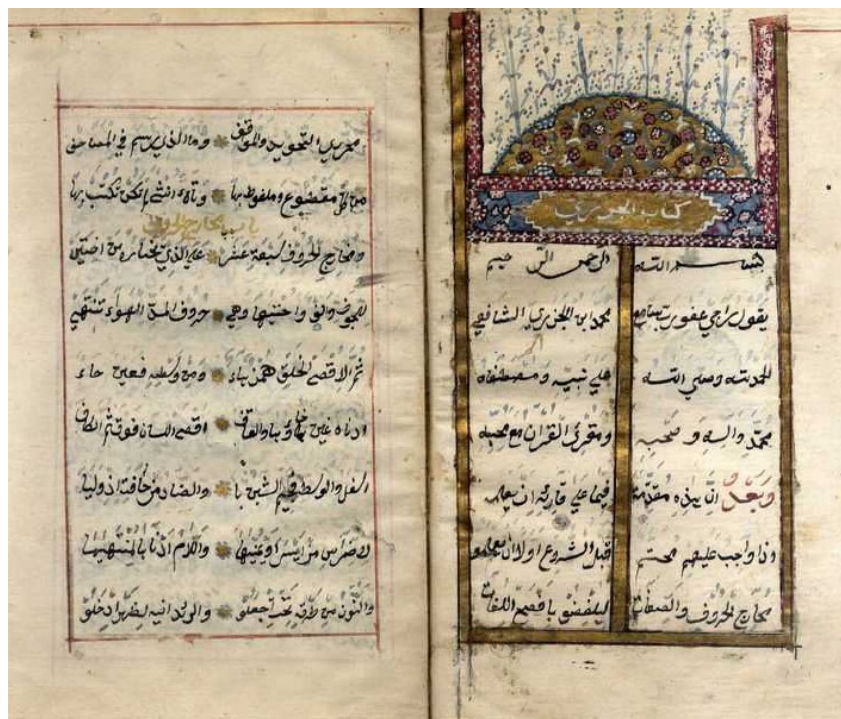 كتاب الجزري
بسم الله الرحمن الرحيم
يقول راجي عفو رب سامع محمد ابن الجزري الشافعي
الحمد لله وصلي الله علي نبيه ومصطفاه
محمد واله وصحبه ومقرئ القران مع محبه
وبعد ان هذه مقدمة فيما علي قارئه ان يعلمه
اذا واجب عليهم محتم قبل الشروع اولا ان يعلموا
مخارج الحروف والصفات ليلفضو بافصح اللغات
محرري التجويد والموقف وما الذي رسم في المصاحف
من كل مقطوع وموصول بها وتاء انثى لم تكن تكتب بها
باب مخارج الحروف
ومخارج الحروف سبعة عشر علي الذي يختاره من اختبر
للجوف الف واختيها وهي حروف المد للهواء تنتهي
ثم لاقصي الحلق همز هاء ومن وسطه فعين حاء
ادناه غين خاؤها والقاف اقصي اللسان فوق ثم الكاف
اسفل والوسط فجيم الشين يا والضاد من حافته اذ وليا
لاضراس من ايسر او يمنيها واللام ادناها لمنتهيها
والنون من طرفه تحت اجعلو والراء يدانيه لظهر ادخلو